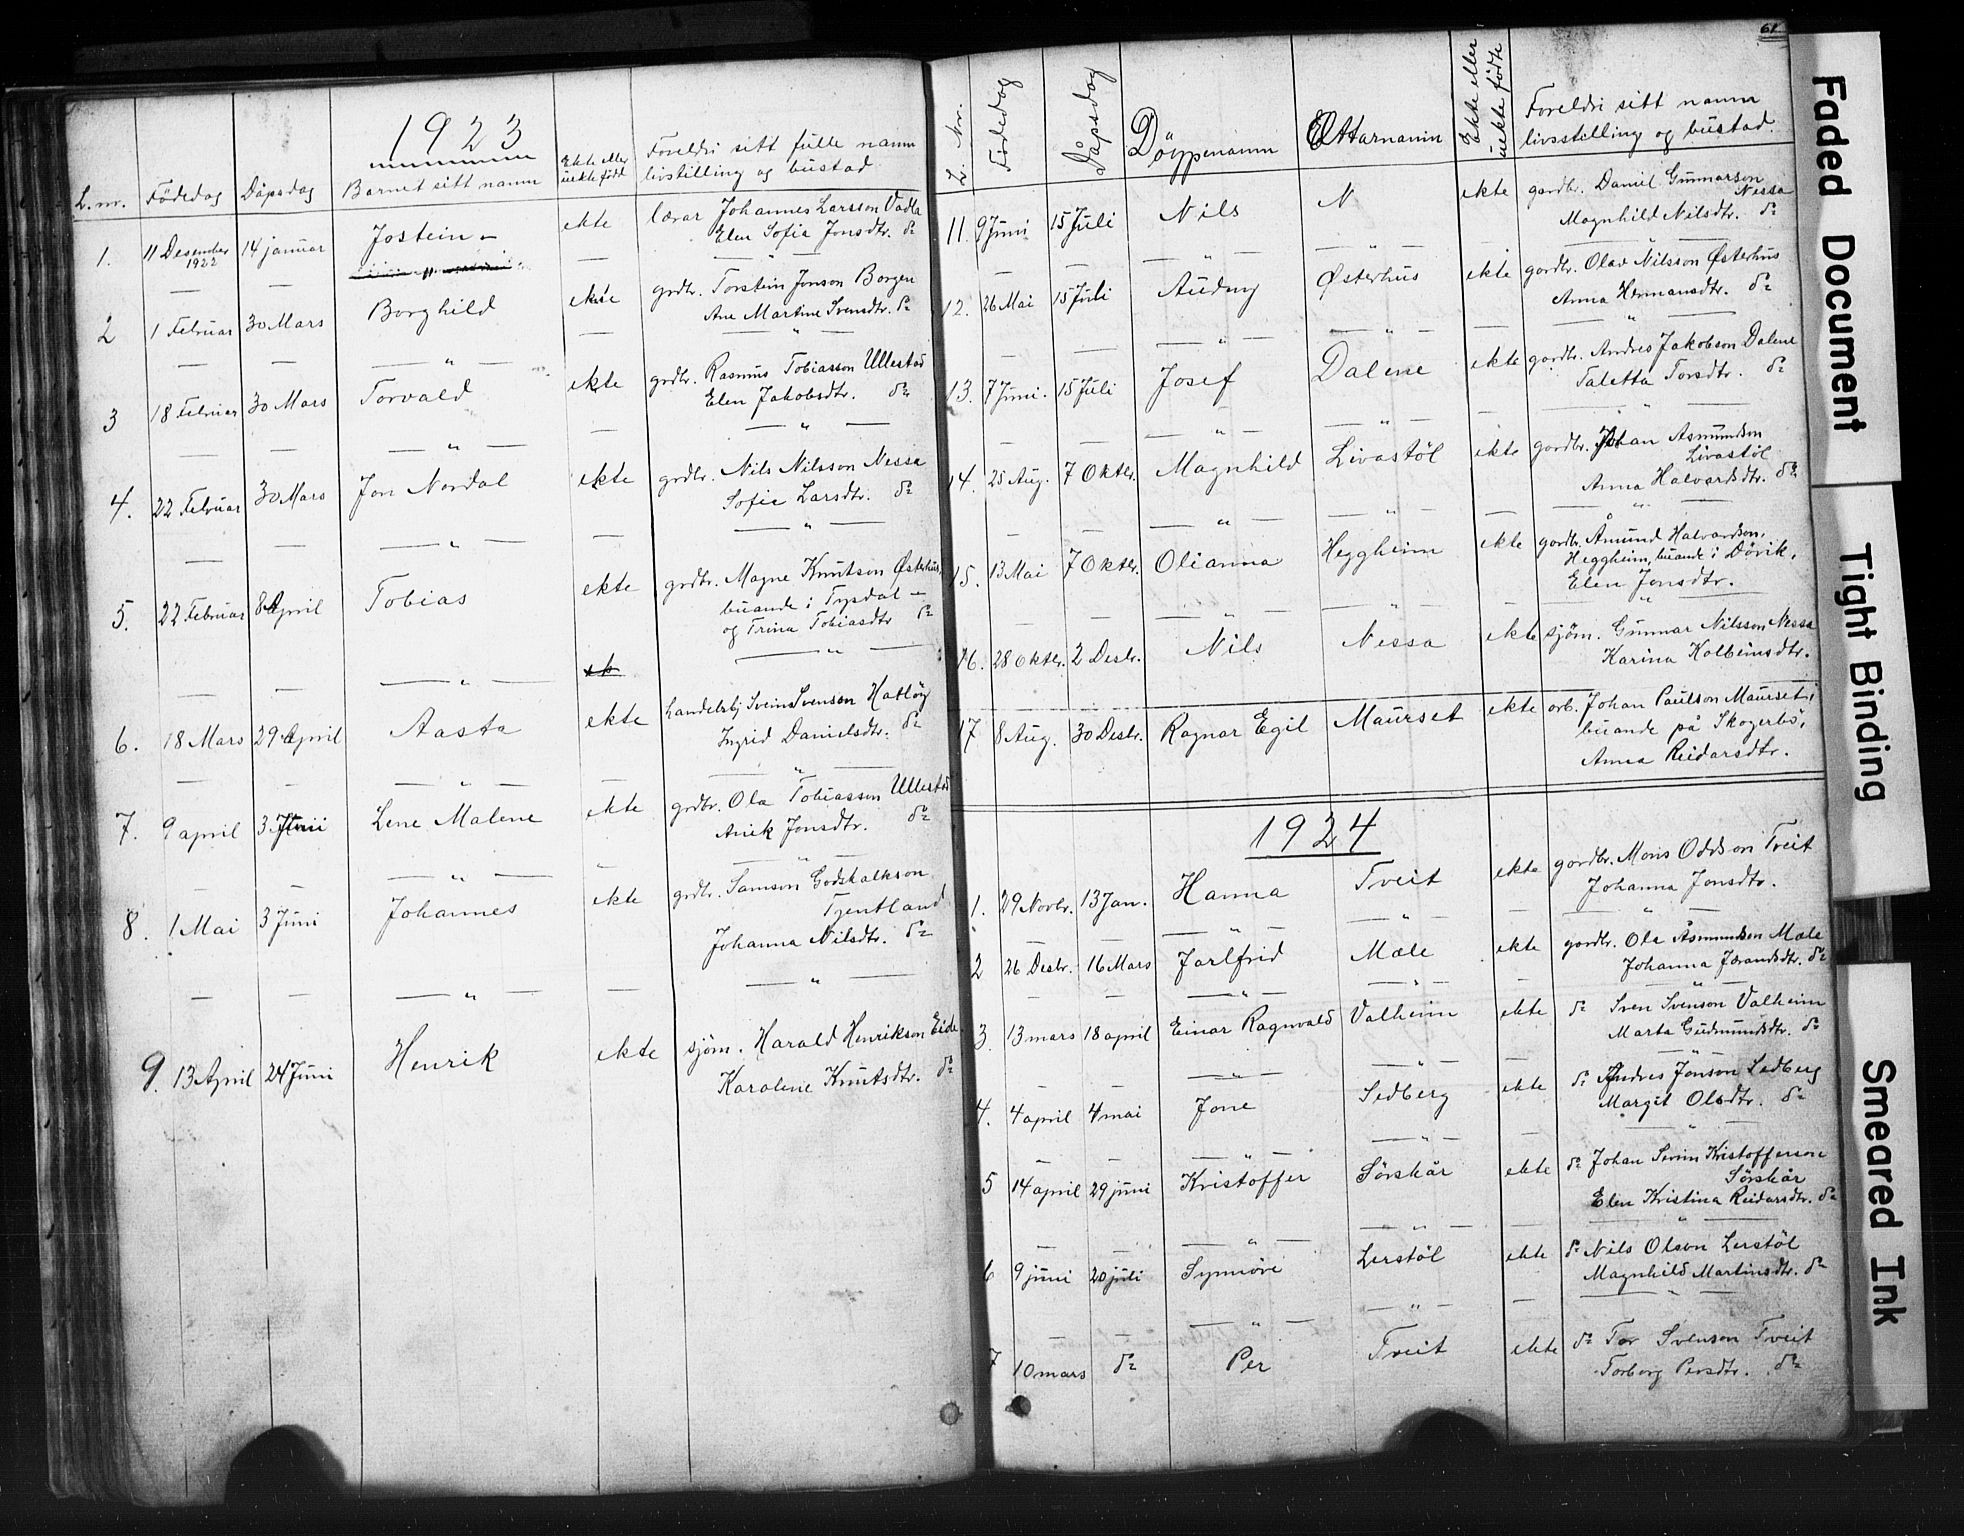 1923
L. nr. Födedag Dåpsdag Barnet sitt namn Ekte eller uekte født Foreldri sitt fulle namn livstilling og bustad
1. 11 Desember 1922 14 januar Jostein – ekte lærar Johannes Larsson Vadla
Elen Sofia Jonsdtr. do
2 1 Februar 30 Mars Borghild ekte grdbr. Torstein Jonson Borgen
Ane Martine Svensdtr. do
3 18 Februar 30 Mars Torvald ekte grdbr. Rasmus Tobiasson Ullestad
Elen Jakobsdtr. do
4. 22 Februar 30 Mars Jon Nordal ekte grdbr. Nils Nilsson Nessa
Sofie Larsdtr. do
5. 22 Februar 8 April Tobias ekte grdbr. Magne Knutson Østerhus,
buande i Tysdal –
og Trina Tobiasdtr do
6. 18 Mars 29 April Aasta ekte handelsbj Svein Svenson Hatløy
Ingrid Danielsdtr. do
7. 9 april 3 Juni Lene Malene ekte grdbr. Ola Tobiasson Ullestad
Anik Jonsdtr. do
8. 1 Mai 3 Juni Johannes ekte grdbr. Samson Godskalkson
Tjentland
Johanna Nilsdtr. do
9. 13 April 24 Juni Henrik ekte sjøm. Harald Henrikson Eide
Karolene Knutsdtr. do
61
L. Nr. Födedag Dåpsdag Döypenamn Ættarnamn Ekte eller uekte fødte Foreldri sitt namn
livsstilling og bustad.
11. 9 Juni 15 Juli Nils N ekte gardbr. Daniel Gunnarson
Nessa
Magnhild Nilsdtr. do
12. 26 Mai 15 Juli Audny Østerhus ekte gardbr. Olav Nilsson Østerhus
Anna Hermansdtr. do
13. 7 Juni. 15 Juli Josef Dalene ekte gardbr. Andres Jakobson Dalene
Taletta Torsdtr. do
14. 25 Aug. 7 Oktbr. Magnhild Livastöl ekte gardbr. Johan Asmundson
Livastöl
Anna Halvardsdtr. do
15. 13 Mai 7 Oktbr. Olianna Heggheim ekte gardbr. Åmund Halvardson,
Heggheim, buande i Dörvik,
Elen Jonsdtr.
16. 28 Oktbr. 2 Desbr. Nils Nessa ekte sjøm. Gunnar Nilsson Nessa
Karina Kolbeinsdtr.
17 8 Aug. 30 Desbr. Ragnar Egil Maurset ekte arb. Johan Paulson Maurset,
buande på Skogerbö,
Anna Reidarsdtr.
1924
1. 29 Novbr. 13 Jan. Hanna Tveit ekte gardbr. Mons Oddson Tveit
Johanna Jonsdtr.
2 26 Desbr. 16 Mars Jarlfrid Mæle ekte gardbr. Ola Åsmundson Mæle
Johanna Jørandsdtr. do
3. 13 mars 18 april Einar Ragnvald Valheim ekte do Sven Svenson Valheim
Marta Gudmundsdtr. do
4. 4 april 4 mai Jone Sedberg ekte do Andres Jonson Sedberg
Margit Olsdtr. do
5 14 april 29 juni Kristoffer Sörskår ekte do Johan Severin Kristofferson
Sörskår
Elen Kristina Reidarsdtr. do
6 9 juni 20 juli Synnöve Lerstöl ekte do Nils Olson Lerstöl
Magnhild Martinsdtr. do
7 10 mars do Per Tveit ekte do Tor Svenson Tveit
Torborg Persdtr. do
Faded Document
Tight Binding
Smeared Ink